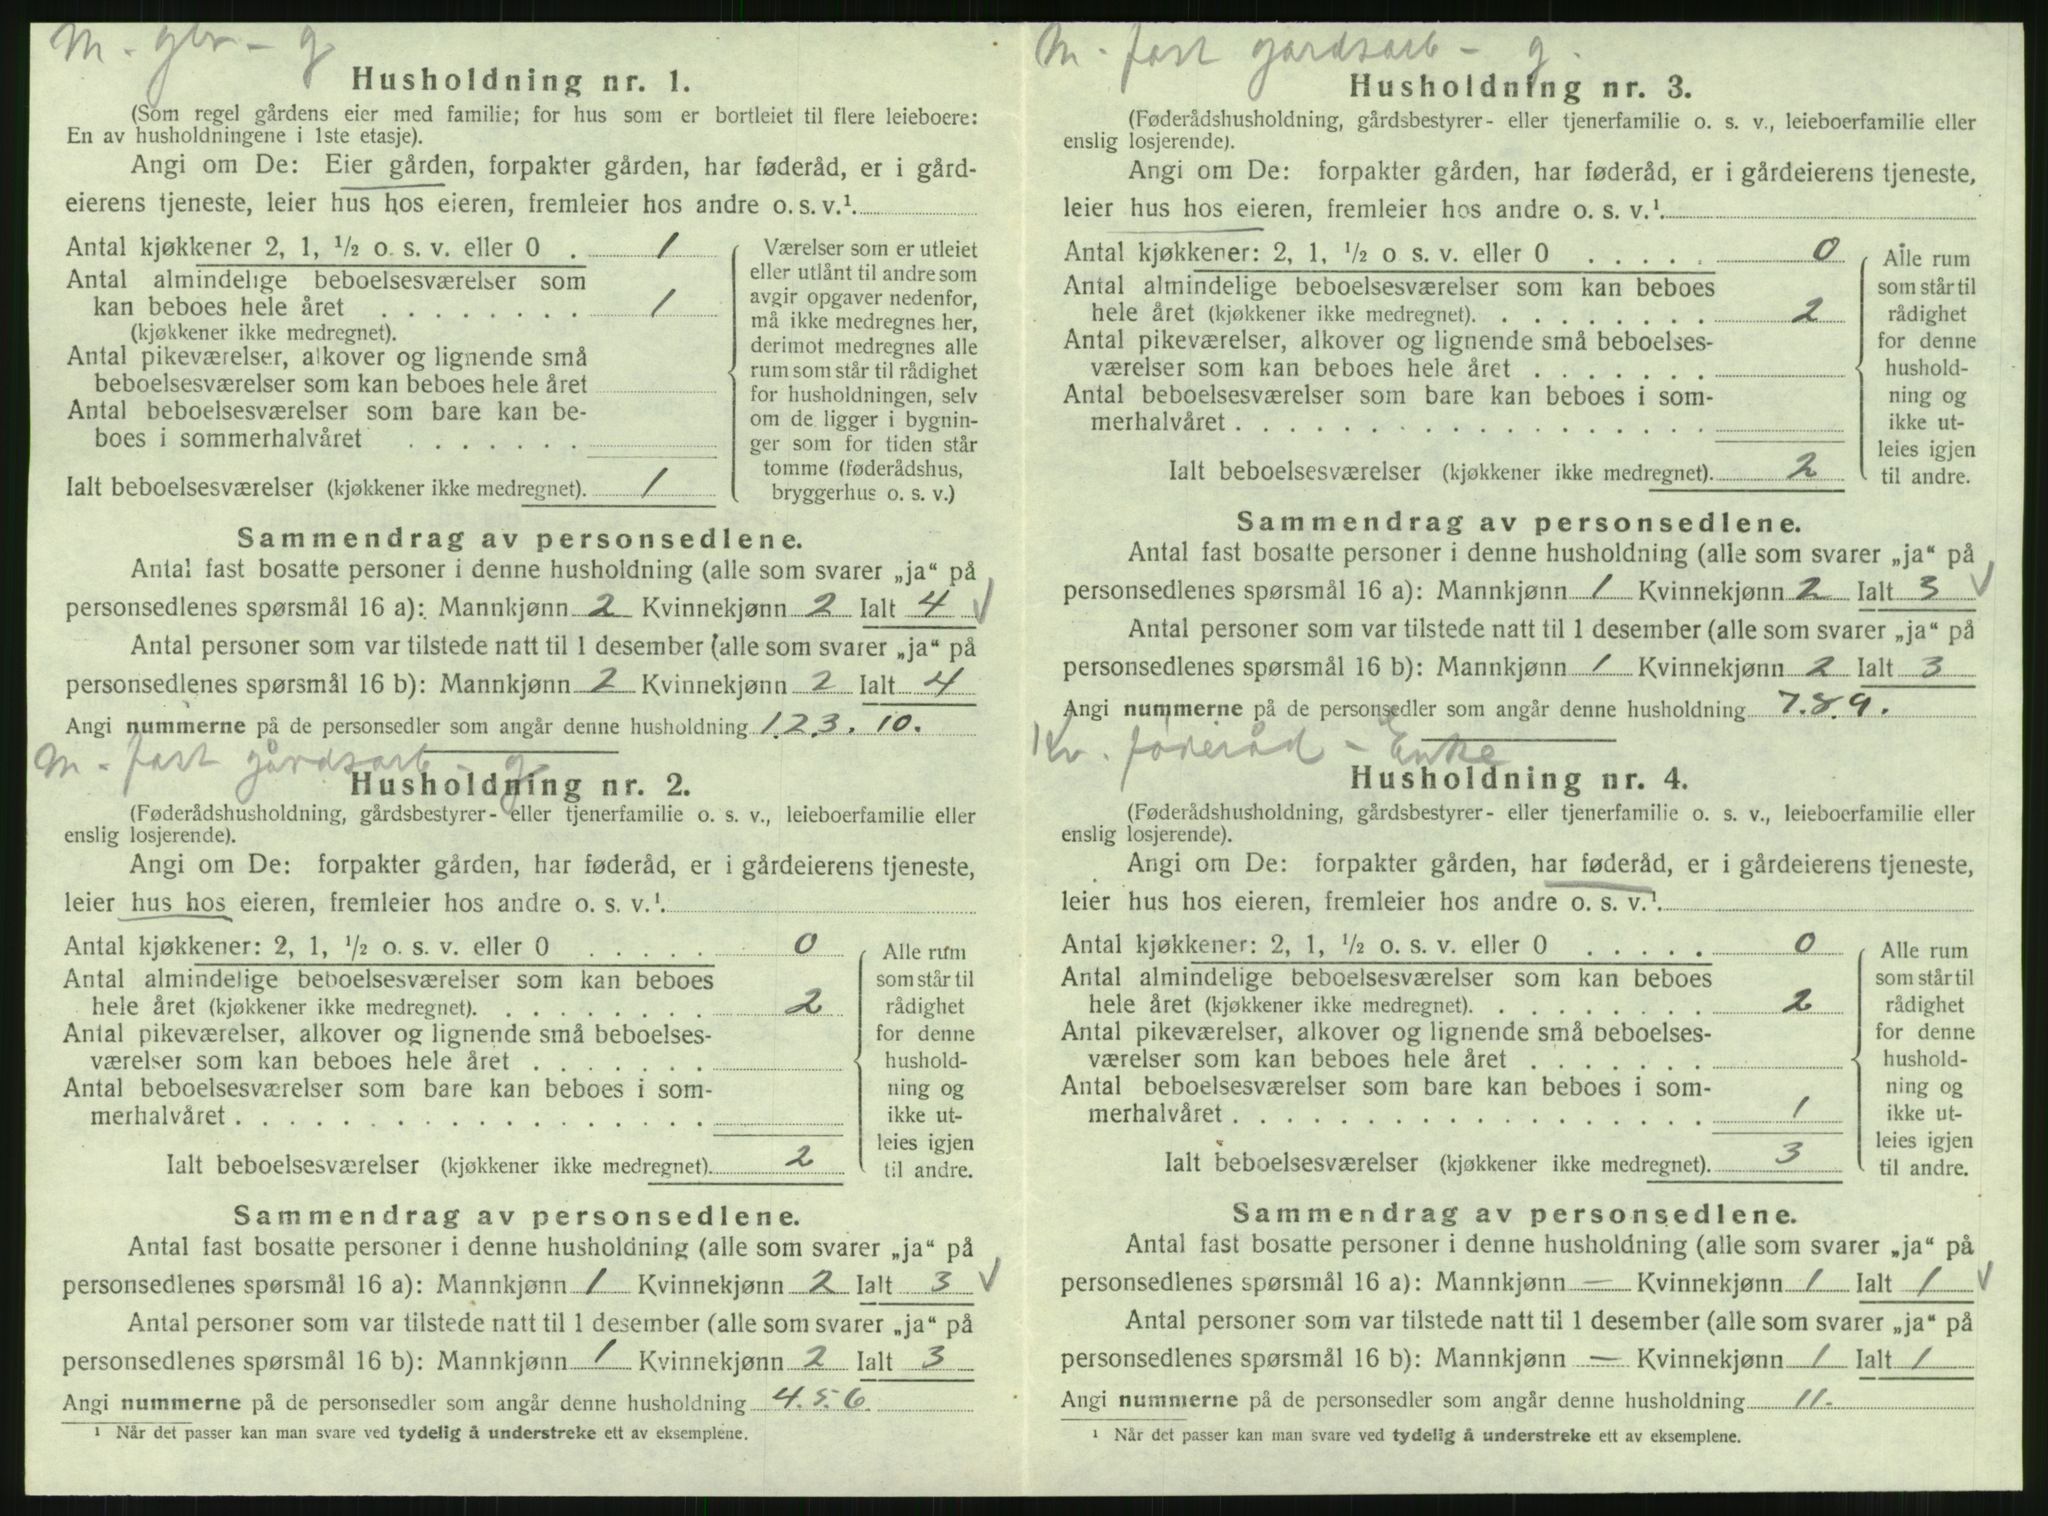 M. gbr - g
Husholdning nr. 1.
(Som regel gårdens eier med familie; for hus som er bortleiet til flere leieboere:
En av husholdningene i 1ste etasje).
Angi om De: Eier gården, forpakter gården, har føderåd, er i gård-
eierens tjeneste, leier hus hos eieren, fremleier hos andre o. s. v.¹.
Antal kjøkkener 2, 1, ½ o. s. v. eller 0 . 1
Antal almindelige beboelsesværelser som
kan beboes hele året . . . . . . . . 1
(kjøkkener ikke medregnet).
Antal pikeværelser, alkover og lignende små
beboelsesværelser som kan beboes hele året
Antal beboelsesværelser som bare kan be-
boes i sommerhalvåret . . . . . . .
Ialt beboelsesværelser (kjøkkener ikke medregnet). 1
Værelser som er utleiet
eller utlånt til andre som
avgir opgaver nedenfor,
må ikke medregnes her,
derimot medregnes alle
rum som står til rådighet
for husholdningen, selv
om de ligger i bygnin-
ger som for tiden står
tomme (føderådshus,
bryggerhus o. s. v.)
Sammendrag av personsedlene.
Antal fast bosatte personer i denne husholdning (alle som svarer „ja“ på
personsedlenes spørsmål 16 a): Mannkjønn 2 Kvinnekjønn 2 Ialt 4 √
Antal personer som var tilstede natt til 1 desember (alle som svarer „ja“ på
personsedlenes spørsmål 16 b): Mannkjønn 2 Kvinnekjønn 2 Ialt 4
Angi nummerne på de personsedler som angår denne husholdning 1.2.3. 10.
M. fast gårdsarb - g
Husholdning nr. 2.
(Føderådshusholdning, gårdsbestyrer- eller tjenerfamilie o. s. v., leieboerfamilie eller
enslig losjerende).
Angi om De: forpakter gården, har føderåd, er i gårdeierens tjeneste,
leier hus hos eieren, fremleier hos andre o. s. v.¹.
Antal kjøkkener: 2, 1, ½ o. s. v. eller 0 . . . . . 0
Antal almindelige beboelsesværelser som kan beboes
hele året (kjøkkener ikke medregnet). . . . . . . . . 2
Antal pikeværelser, alkover og lignende små beboelses-
værelser som kan beboes hele året . . . . . . .
Antal beboelsesværelser som bare kan beboes i som-
merhalvåret . . . . . . . . . . . . . . . . . .
Ialt beboelsesværelser (kjøkkener ikke medregnet). 2
Alle rum
som står til
rådighet
for denne
hushold-
ning og
ikke ut-
leies igjen
til andre.
Sammendrag av personsedlene.
Antal fast bosatte personer i denne husholdning (alle som svarer „ja“ på
personsedlenes spørsmål 16 a): Mannkjønn 1 Kvinnekjønn 2 Ialt 3 √
Antal personer som var tilstede natt til 1 desember (alle som svarer „ja“ på
personsedlenes spørsmål 16 b): Mannkjønn 1 Kvinnekjønn 2 Ialt 3
Angi nummerne på de personsedler som angår denne husholdning 4.5.6.
¹ Når det passer kan man svare ved tydelig å understreke ett av eksemplene.
M. fast gårdsarb - g.
Husholdning nr. 3.
(Føderådshusholdning, gårdsbestyrer- eller tjenerfamilie o. s. v., leieboerfamilie eller
enslig losjerende).
Angi om De: forpakter gården, har føderåd, er i gårdeierens tjeneste,
leier hus hos eieren, fremleier hos andre o. s. v.¹.
Antal kjøkkener: 2, 1, ½ o s. v. eller 0 . . . . . 0
Antal almindelige beboelsesværelser som kan beboes
hele året (kjøkkener ikke medregnet). . . . . . . . . 2
Antal pikeværelser, alkover og lignende små beboelses-
værelser som kan beboes hele året . . . . . . .
Antal beboelsesværelser som bare kan beboes i som-
merhalvåret . . . . . . . . . . . . . . . . . .
Ialt beboelsesværelser (kjøkkener ikke medregnet). 2
Alle rum
som står til
rådighet
for denne
hushold-
ning og
ikke ut-
leies igjen
til andre.
Sammendrag av personsedlene.
Antal fast bosatte personer i denne husholdning (alle som svarer „ja“ på
personsedlenes spørsmål 16 a): Mannkjønn 1 Kvinnekjønn 2 Ialt 3 √
Antal personer som var tilstede natt til 1 desember (alle som svarer „ja“ på
personsedlenes spørsmål 16 b): Mannkjønn 1 Kvinnekjønn 2 Ialt 3
Angi nummerne på de personsedler som angår denne husholdning 7.8.9.
Kv. føderåd - Enke
Husholdning nr. 4.
(Føderådshusholdning, gårdsbestyrer- eller tjenerfamilie o. s. v., leieboerfamilie eller
enslig losjerende).
Angi om De: forpakter gården, har føderåd, er i gårdeierens tjeneste,
leier hus hos eieren, fremleier hos andre o. s. v.¹.
Antal kjøkkener: 2, 1, ½ o. s. v. eller 0 . . . . . 0
Antal almindelige beboelsesværelser som kan beboes
hele året (kjøkkener ikke medregnet). . . . . . . . . 2
Antal pikeværelser, alkover og lignende små beboelses-
værelser som kan beboes hele året . . . . . . .
Antal beboelsesværelser som bare kan beboes i som-
merhalvåret . . . . . . . . . . . . . . . . . . 1
Ialt beboelsesværelser (kjøkkener ikke medregnet). 3
Alle rum
som står til
rådighet
for denne
hushold-
ning og
ikke ut-
leies igjen
til andre.
Sammendrag av personsedlene.
Antal fast bosatte personer i denne husholdning (alle som svarer „ja“ på
personsedlenes spørsmål 16 a): Mannkjønn — Kvinnekjønn 1 Ialt 1 √
Antal personer som var tilstede natt til 1 desember (alle som svarer „ja“ på
personsedlenes spørsmål 16 b): Mannkjønn — Kvinnekjønn 1 Ialt 1
Angi nummerne på de personsedler som angår denne husholdning 11.
¹ Når det passer kan man svare ved tydelig å understreke ett av eksemplene.